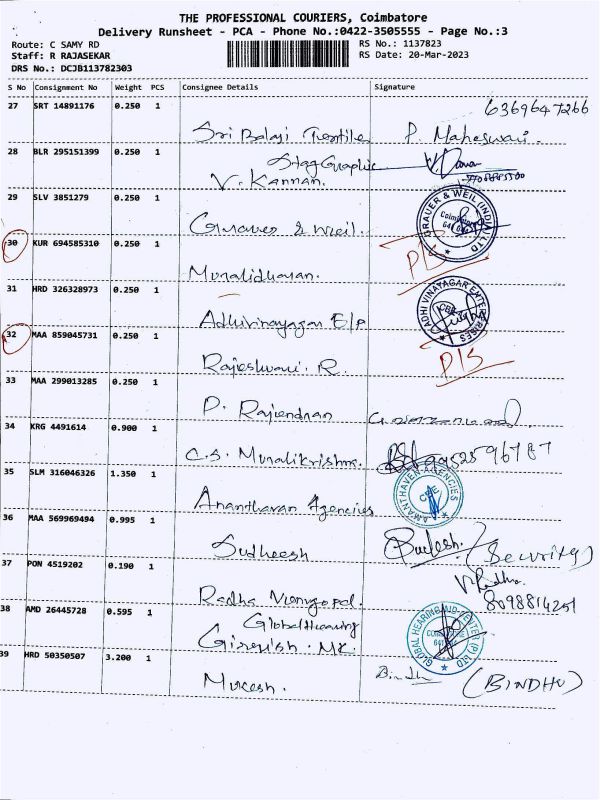 THE PROFESSIONAL COURIERS, Coimbatore
Delivery Runsheet - PCA - Phone No.:0422-3505555 - Page No.:3
Route: C SAMY RD
RS No.: 1137823
Staff: R RAJASEKAR
RS Date: 20-Mar-2023
DRS No.: DCJB113782303
S No Consignment No Weight PCS Consignee Details Signature
27 SRT 14891176 0.250 1
6369647266
Sri Balaji Textiles P. Maheswari.
28 BLR 295151399 0.250 1
Stag Graphic
V. Kannan.
29 SLV 3851279 0.250 1
GRAUER & WEIL (INDIA) LTD
Coimbatore
Grauer & Weil.
30 KUR 694585310 0.250 1
Muralidharan.
31 HRD 326328973 0.250 1
AADHI VINAYAGAR ENTERPRISES
CBE
Adhivinayagan E/p
32 MAA 859045731 0.250 1
Rajeshwari. R.
33 MAA 299013285 0.250 1
P. Rajendnan
34 KRG 4491614 0.900 1
C.S. Muralikrishna. 9952596787
35 SLM 316046326 1.350 1
AMANTHAVEN AGENCIES
CBE
Anantharan Agencies
36 MAA 569969494 0.995 1
Sudheesh Sudesh. (Security)
37 PON 4519202 0.190 1
8098814251
Radha Venugopal.
38 AMD 26445728 0.595 1
Global Hearing
GLOBAL HEARING AID CENTER (P) LTD
Girerish. MK.
39 HRD 50350507 3.200 1
Mukesh. Bindhu (BINDHU)